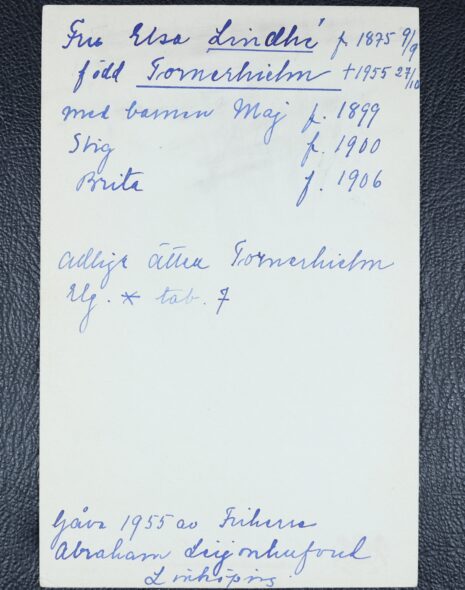 Fru Elsa Lindhé f. 1875 9/9
född Tornerhielm +1955 27/10
med barnen Maj f. 1899
Stig f. 1900
Brita f. 1906
Adliga ätten Tornerhielm
Elg. * tab. 7
Gåva 1955 av Friherre
Abraham Leijonhufvud
Linköping.